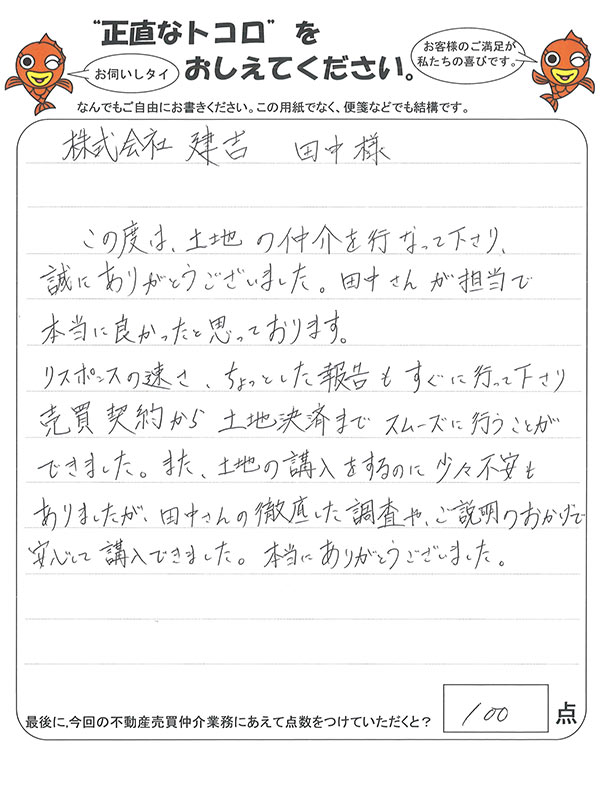 "正直なトコロ"を
お伺いしタイ
おしえてください。
お客様のご満足が
私たちの喜びです。
なんでもご自由にお書きください。この用紙でなく、便箋などでも結構です。
株式会社 建吉 田中様
この度は、土地の仲介を行なって下さり、
誠にありがとうございました。田中さんが担当で
本当に良かったと思っております。
リスポンスの速さ、ちょっとした報告もすぐに行って下さり
売買契約から土地決済までスムーズに行うことが
できました。また、土地の講入をするのに少々不安も
ありましたが、田中さんの徹底した調査や、ご説明のおかげで
安心して講入できました。本当にありがとうございました。
最後に、今回の不動産売買仲介業務にあえて点数をつけていただくと？ 100 点